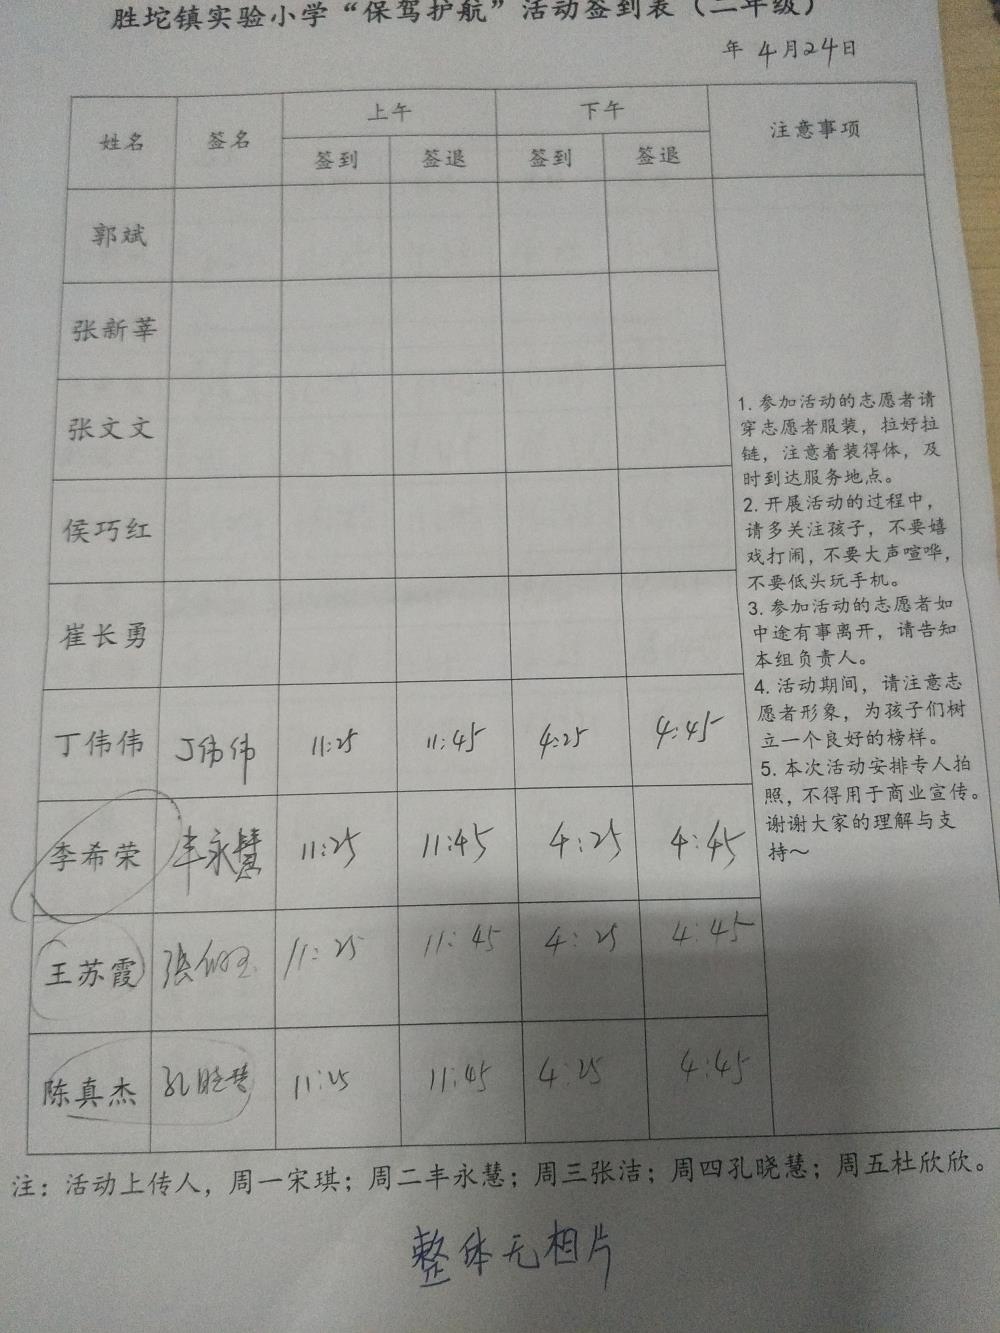 胜坨镇实验小学“保驾护航”活动签到表（二年级）
年 4月24日
姓名 签名 上午 下午 注意事项
签到 签退 签到 签退
郭斌
张新莘
张文文
侯巧红
崔长勇
丁伟伟 丁伟伟 11:25 11:45 4:25 4:45
李希荣 丰永慧 11:25 11:45 4:25 4:45
王苏霞 11:25 11:45 4:25 4:45
陈真杰 孔晓慧 11:25 11:45 4:25 4:45
1. 参加活动的志愿者请
穿志愿者服装，拉好拉
链，注意着装得体，及
时到达服务地点。
2. 开展活动的过程中，
请多关注孩子，不要嬉
戏打闹，不要大声喧哗，
不要低头玩手机。
3. 参加活动的志愿者如
中途有事离开，请告知
本组负责人。
4. 活动期间，请注意志
愿者形象，为孩子们树
立一个良好的榜样。
5. 本次活动安排专人拍
照，不得用于商业宣传。
谢谢大家的理解与支
持～
注：活动上传人，周一宋琪；周二丰永慧；周三张洁；周四孔晓慧；周五杜欣欣。
整体无相片